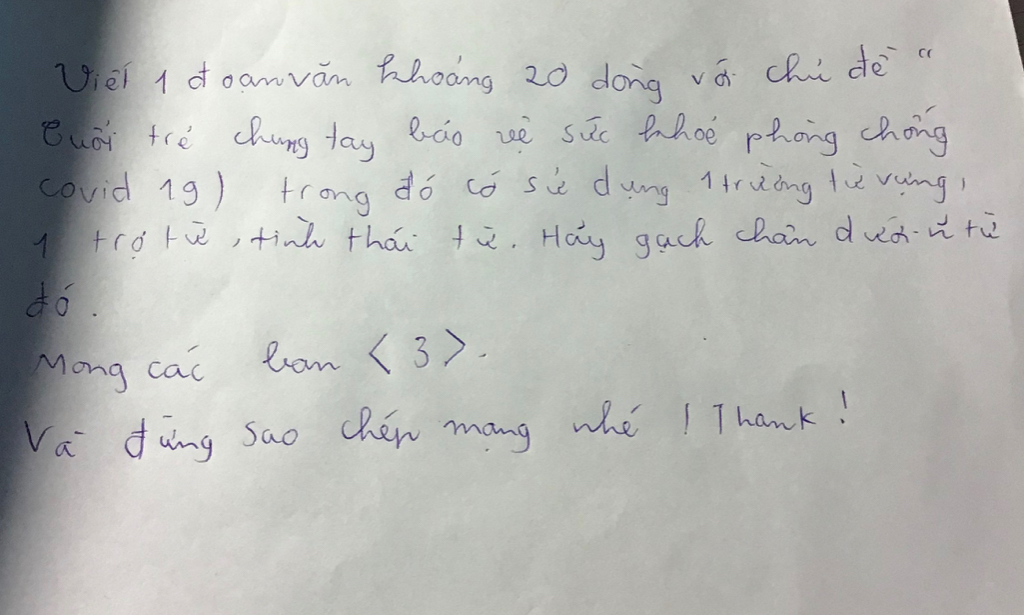 Viết 1 đoạn văn khoảng 20 dòng với chủ đề "
Tuổi trẻ chung tay bảo vệ sức khoẻ phòng chống
covid 19) trong đó có sử dụng 1 trường từ vựng,
1 trợ từ, tình thái từ. Hãy gạch chân dưới n~ từ
đó.
Mong các bạn <3>.
Và đừng sao chép mạng nhé ! Thank !